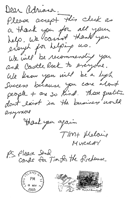 Dear Adriana,
Please accept this check as
a thank you for all your
help. We cannot thank you
enough for helping us.
We will be recommending you
and Oracle Back to everyone.
We know you will be a high
success because you care about
people & so so kind. Those qualities
dont exist in the business world
anymore
Thank you again
Tim &
P.S. Please send
cards the Tim for the firehouse.